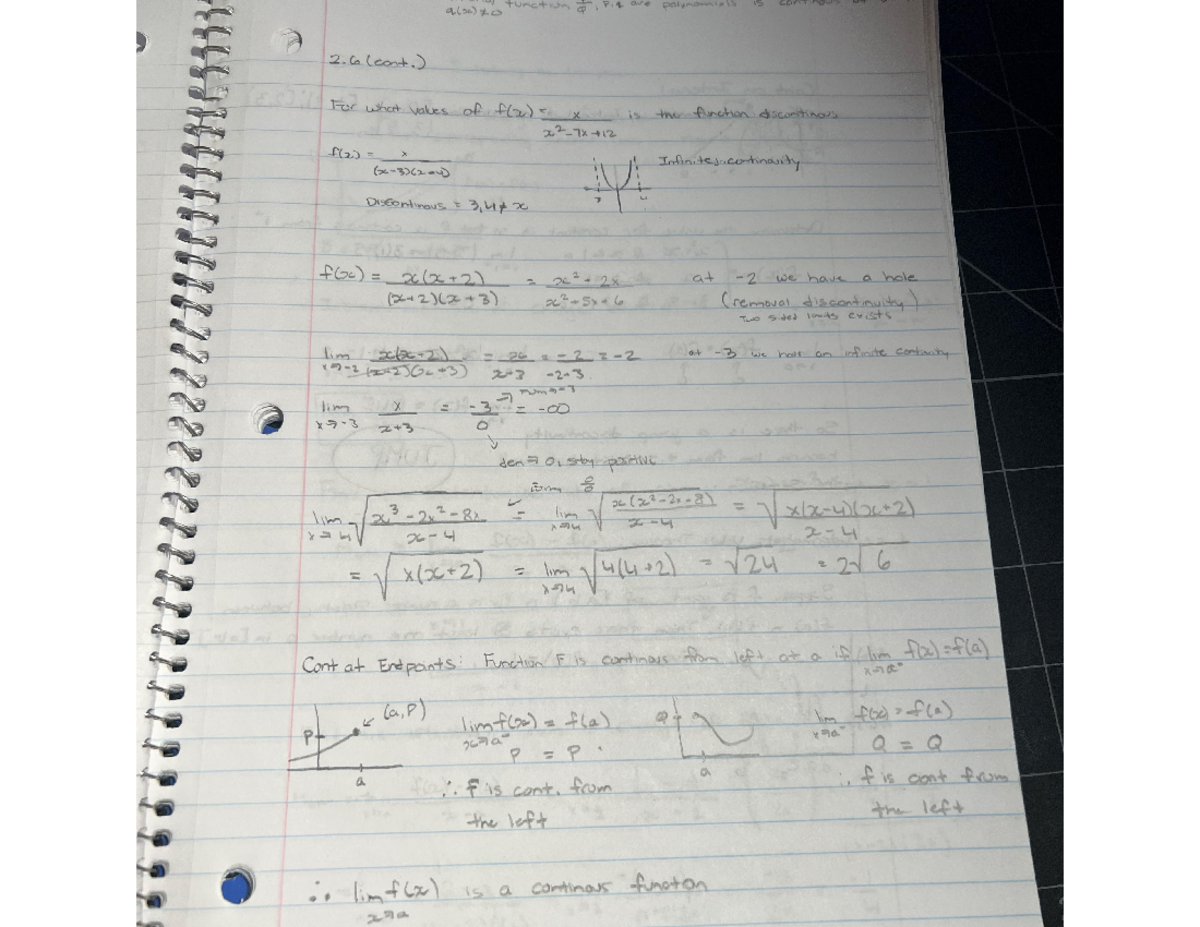 function P/Q, P, Q are polynomials is continous at
q(x)≠0
2.6 (cont.)
For what values of f(x) = x / x²-7x+12 is the function discontinous
f(x) = x / (x-3)(x-4)
Infinite discontinuity
Discontinous = 3, 4 ≠ x
f(x) = x(x+2) / (x+2)(x+3) = x²+2x / x²+5x+6 at -2 we have a hole
(removal discontinuity)
Two sided limits exists
lim x→-2 x(x+2) / (x+2)(x+3) = x / x+3 = -2 / -2+3 = -2 at -3 we have an infinite continuity
lim x→-3 x / x+3 = -3 / 0 = -∞ → num → -3
den → 0, stay positive
form 0/0
lim x→4 √(x³-2x²-8x / x-4) = lim x→4 √(x(x²-2x-8) / x-4) = √(x(x-4)(x+2) / x-4)
= √x(x+2) = lim x→4 √4(4+2) = √24 = 2√6
Cont at Endpoints: Function F is continous from left at a if lim x→a⁻ f(x)=f(a)
(a,P)
P
a
lim x→a⁻ f(x) = f(a)
P = P
∴ F is cont. from
the left
Q
a
lim x→a⁻ f(x) = f(a)
Q = Q
∴ f is cont from
the left
∴ lim x→a f(x) is a continous function